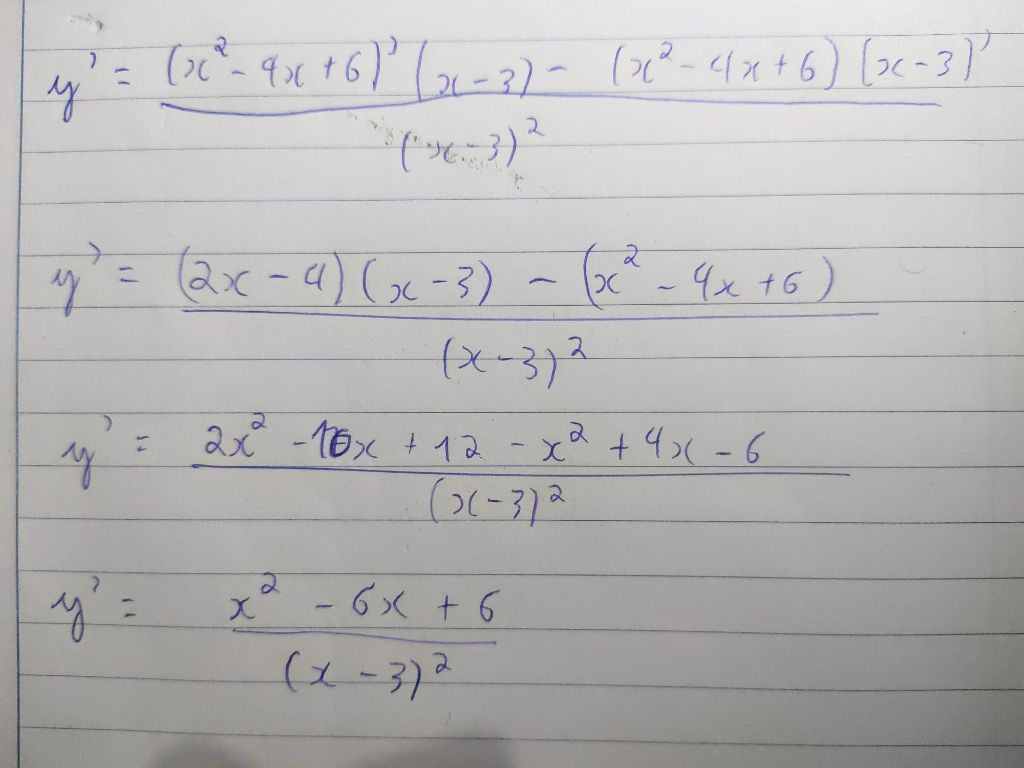 y' = (x² - 4x + 6)' (x - 3) - (x² - 4x + 6) (x - 3)'
(x - 3)²
y' = (2x - 4) (x - 3) - (x² - 4x + 6)
(x - 3)²
y' = 2x² - 10x + 12 - x² + 4x - 6
(x - 3)²
y' = x² - 6x + 6
(x - 3)²